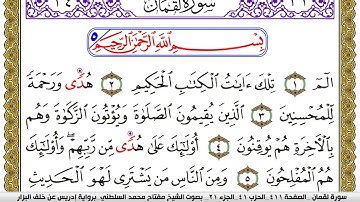 سورة لقمان
بِسْمِ اللَّهِ الرَّحْمَٰنِ الرَّحِيمِ
الٓمٓ ١ تِلْكَ ءَايَٰتُ الْكِتَٰبِ الْحَكِيمِ ٢ هُدًى وَرَحْمَةً
لِّلْمُحْسِنِينَ ٣ الَّذِينَ يُقِيمُونَ الصَّلَوٰةَ وَيُؤْتُونَ الزَّكَوٰةَ وَهُم
بِالْأَخِرَةِ هُمْ يُوقِنُونَ ٤ أُوْلَٰٓئِكَ عَلَىٰ هُدًى مِّن رَّبِّهِمْ وَأُوْلَٰٓئِكَ
هُمُ الْمُفْلِحُونَ ٥ وَمِنَ النَّاسِ مَن يَشْتَرِى لَهْوَ الْحَدِيثِ
سورة لقمان الصفحة ٤١١ الحزب ٤١ الجزء ٢١ بصوت الشيخ مفتاح محمد السلطني برواية إدريس عن خلف البزار